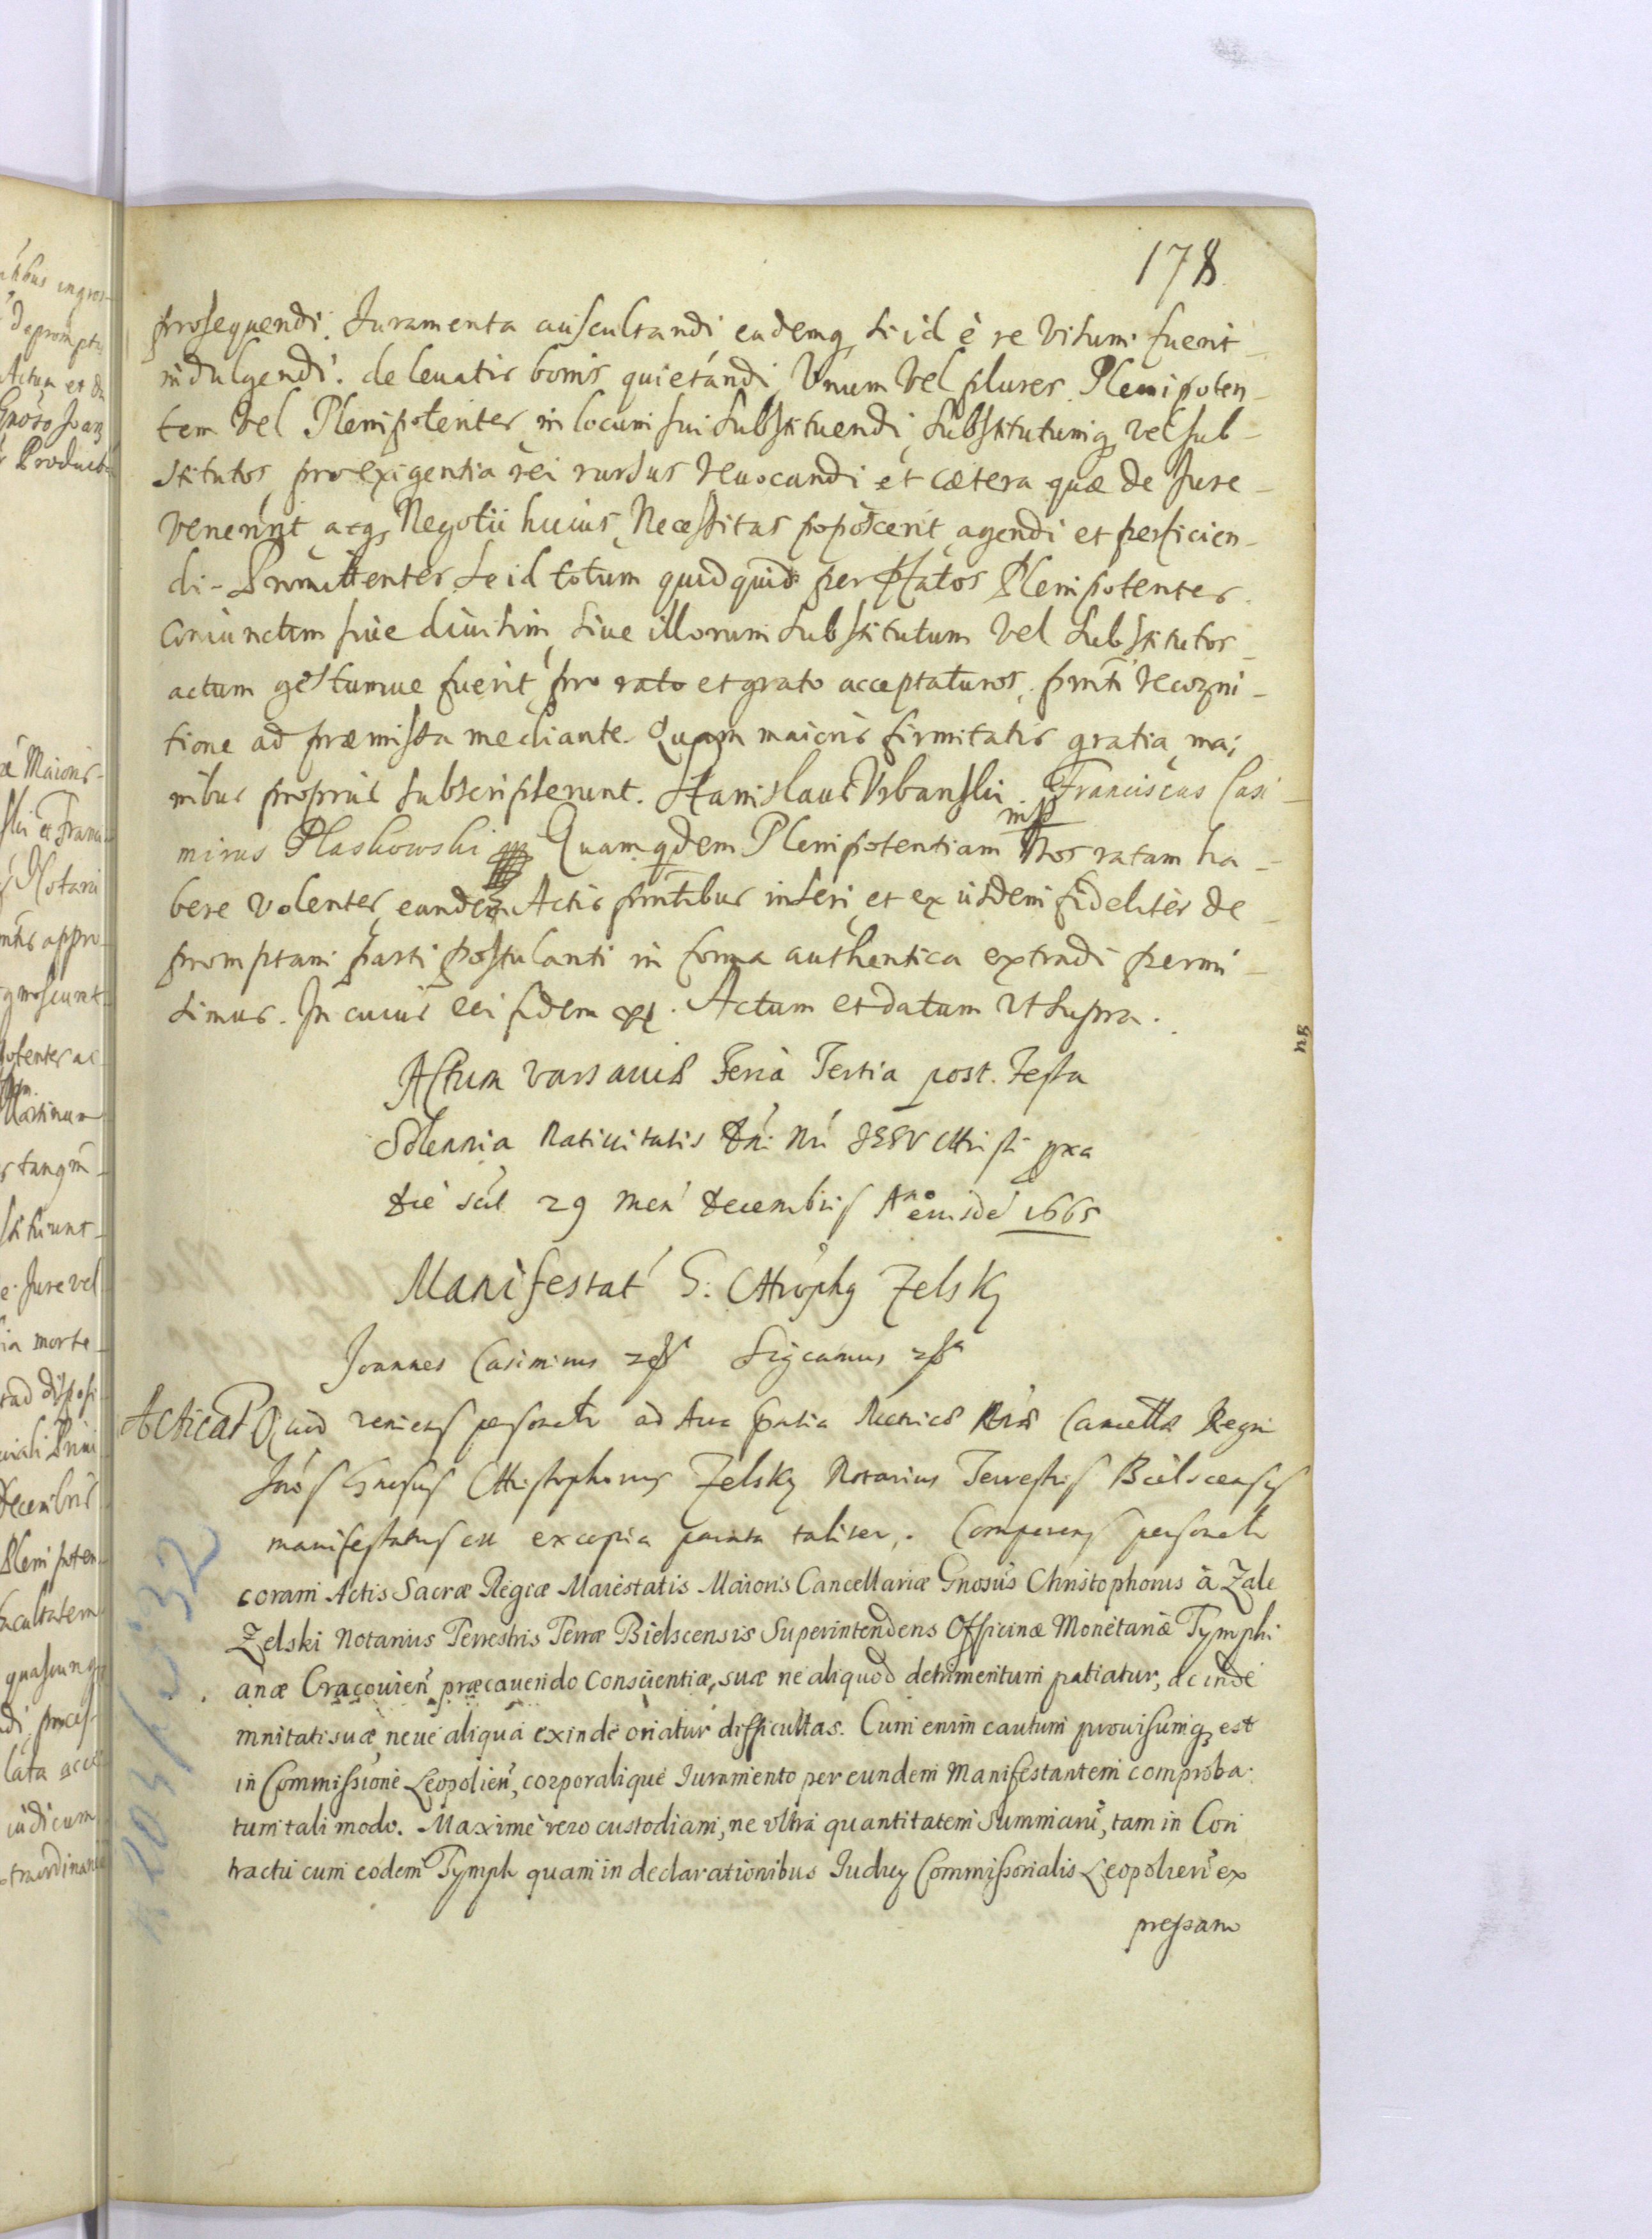 178
prosequendi. Iuramenta auscultandi eademq si id è re visum fuerit
indulgendi. de leuatis bonis quietandi, Vnum vel plures Plenipoten-
tem vel Plenipotentes in locum sui substituendi substitutumq vel sub-
stitutos pro exigentia rei rursus reuocandi et cætera quæ de Jure-
venerint atq Negotii huius Necessitas poposcerit agendi et perficien-
di- Promittentes se id totum quidquid per pttatos Plenipotentes
coniunctim siue diuisim, siue illorum substitutum vel substitutos-
actum gestumue fuerit, pro rato et grato acceptaturos. pmti recogni-
tione ad præmissa mediante. Quam maioris firmitatis gratia ma,
nibus propriis subscripserunt. Stanislaus Vrbanski. Franciscus Casi-
mirus Plaskowski mp Quam qdem Plenipotentiam Nos ratam ha-
bere volentes, eandem Actis pmtibus inseri et ex iisdem fideliter de-
promptam parti postulanti in forma authentica extradi permi-
simus. In cuius rei fidem &c. Actum et datum vt supra.
Actum varsauiæ Feria Tertia post Festa
Solennia Natiuitatis Dni Nri JESV Christi pxa
die scil 29 men decembris Ano eiusde 1665
Manifestat G. Chrophg Zelsky
Joannes Casimirus
Acticat Quod veniens personalr ad Acta pntia Metricæ Cancellæ Regni
Gnosus Christophorus Zelsky Notarius Terrestris Bielscensis
manifestatus est ex copia parata taliter. Comparens personalr
coram Actis Sacræ Regiæ Maiestatis Maioris Cancellariæ Gnosus Christophorus à Zale
Zelski Notarius Terrestris Terræ Bielscensis Superintendens Officinæ Monetariæ Tymphi
anæ Cracouien præcauendo Conscientiæ, suæ ne aliquod detrimentum patiatur, ac inde
mnitati suæ, neue aliqua exinde oriatur difficultas. Cum enim cautum prouisumq est
in Commissione Leopolien, corporalique Iuramento per eundem Manifestantem comproba.
tum tali modo. Maxime vero custodiam, ne vltra quantitatem Summarū, tam in Con
tractu cum eodem Tymph quam in declarationibus Iudicy Commissorialis Leopolien ex
pressam